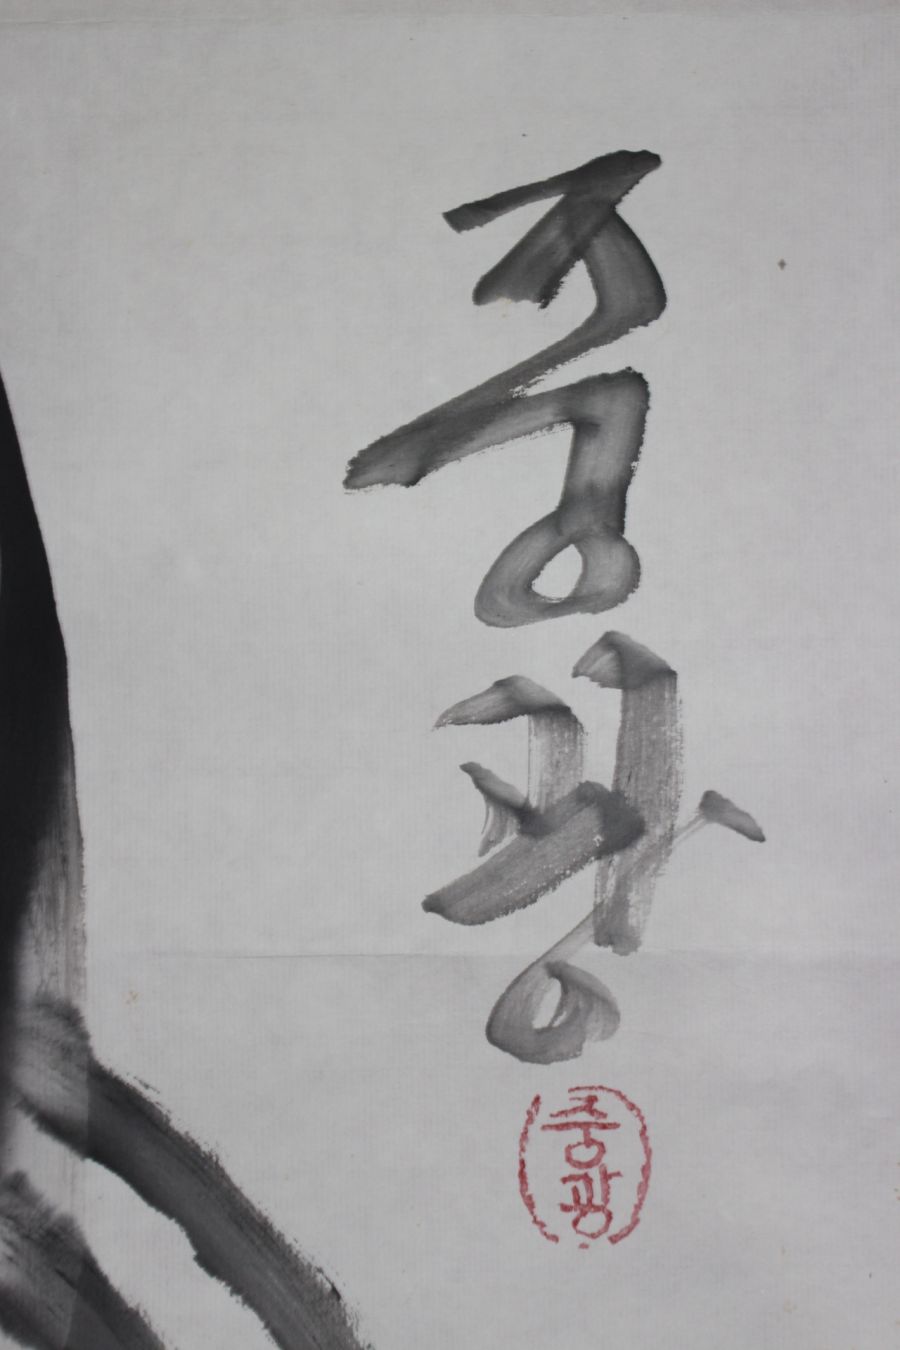 중
광
중
광